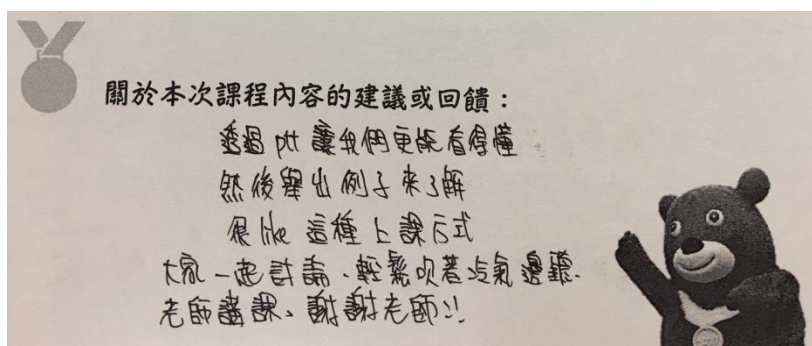 關於本次課程內容的建議或回饋：
透過 ptt 讓我們更能看得懂
然後舉出例子來了解
很 like 這種上課方式
大家一起討論、輕鬆吹著冷氣邊聽
老師講課、謝謝老師!!